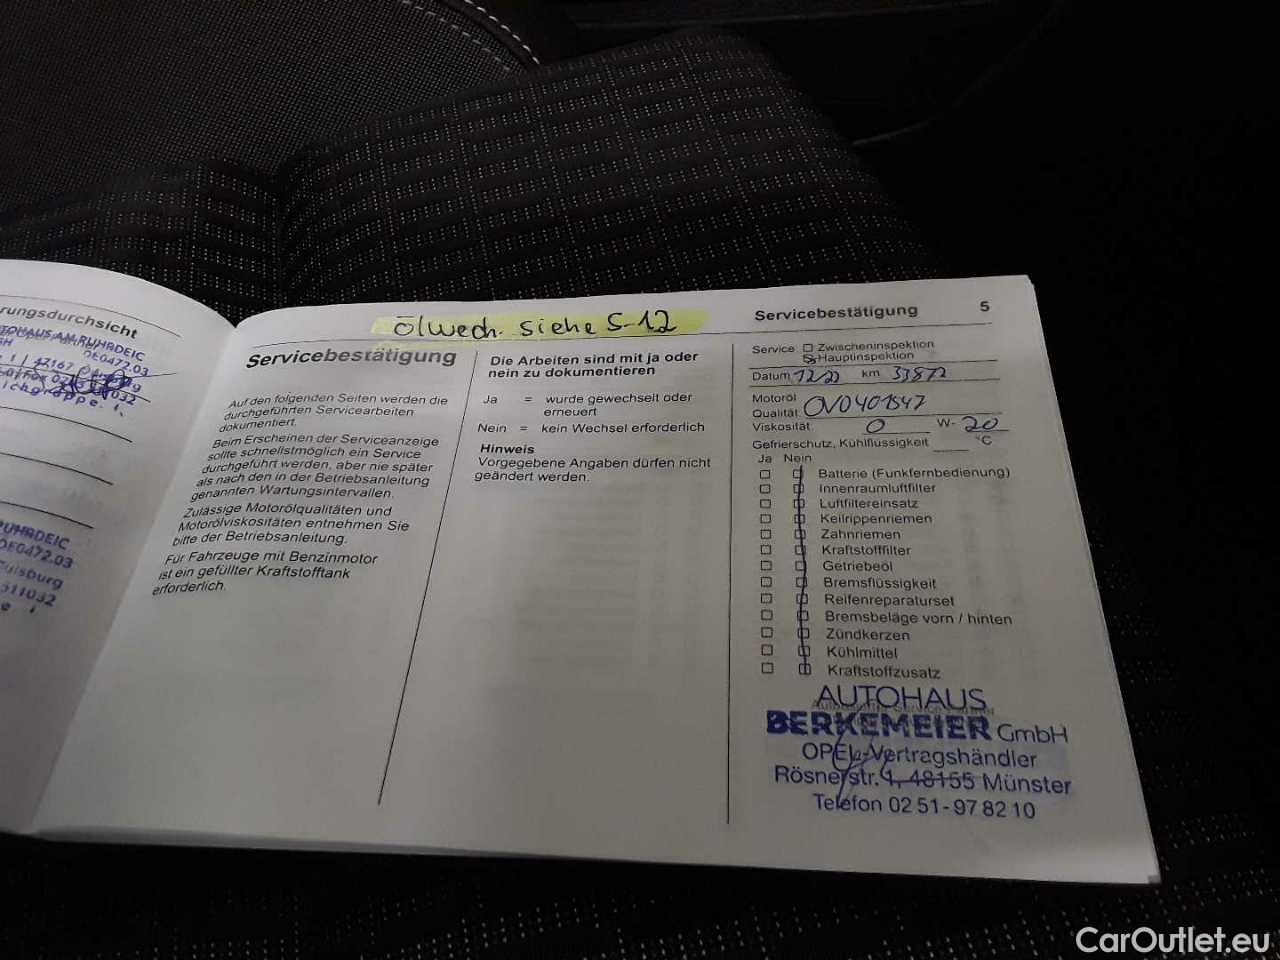 rungsdurchsicht
TOHAUS AM RUHRDEIC
DE0472.03
42167
RUHRDEIC
DE0472.03
uisburg
511032
Ölwech. siehe S-12
Servicebestätigung
Auf den folgenden Seiten werden die
durchgeführten Servicearbeiten
dokumentiert.
Beim Erscheinen der Serviceanzeige
sollte schnellstmöglich ein Service
durchgeführt werden, aber nie später
als nach den in der Betriebsanleitung
genannten Wartungsintervallen.
Zulässige Motorölqualitäten und
Motorölviskositäten entnehmen Sie
bitte der Betriebsanleitung.
Für Fahrzeuge mit Benzinmotor
ist ein gefüllter Kraftstofftank
erforderlich.
Die Arbeiten sind mit ja oder
nein zu dokumentieren
Ja = wurde gewechselt oder
erneuert
Nein = kein Wechsel erforderlich
Hinweis
Vorgegebene Angaben dürfen nicht
geändert werden.
Servicebestätigung 5
Service Zwischeninspektion
Hauptinspektion
Datum 12/22 km 33872
Motoröl
Qualität OV0401547
Viskosität 0 W- 20
Gefrierschutz, Kühlflüssigkeit °C
Ja Nein
Batterie (Funkfernbedienung)
Innenraumluftfilter
Luftfiltereinsatz
Keilrippenriemen
Zahnriemen
Kraftstofffilter
Getriebeöl
Bremsflüssigkeit
Reifenreparaturset
Bremsbeläge vorn / hinten
Zündkerzen
Kühlmittel
Kraftstoffzusatz
AUTOHAUS
BERKEMEIER GmbH
OPEL-Vertragshändler
Rösnerstr. 1, 48155 Münster
Telefon 02 51-97 82 10
CarOutlet.eu